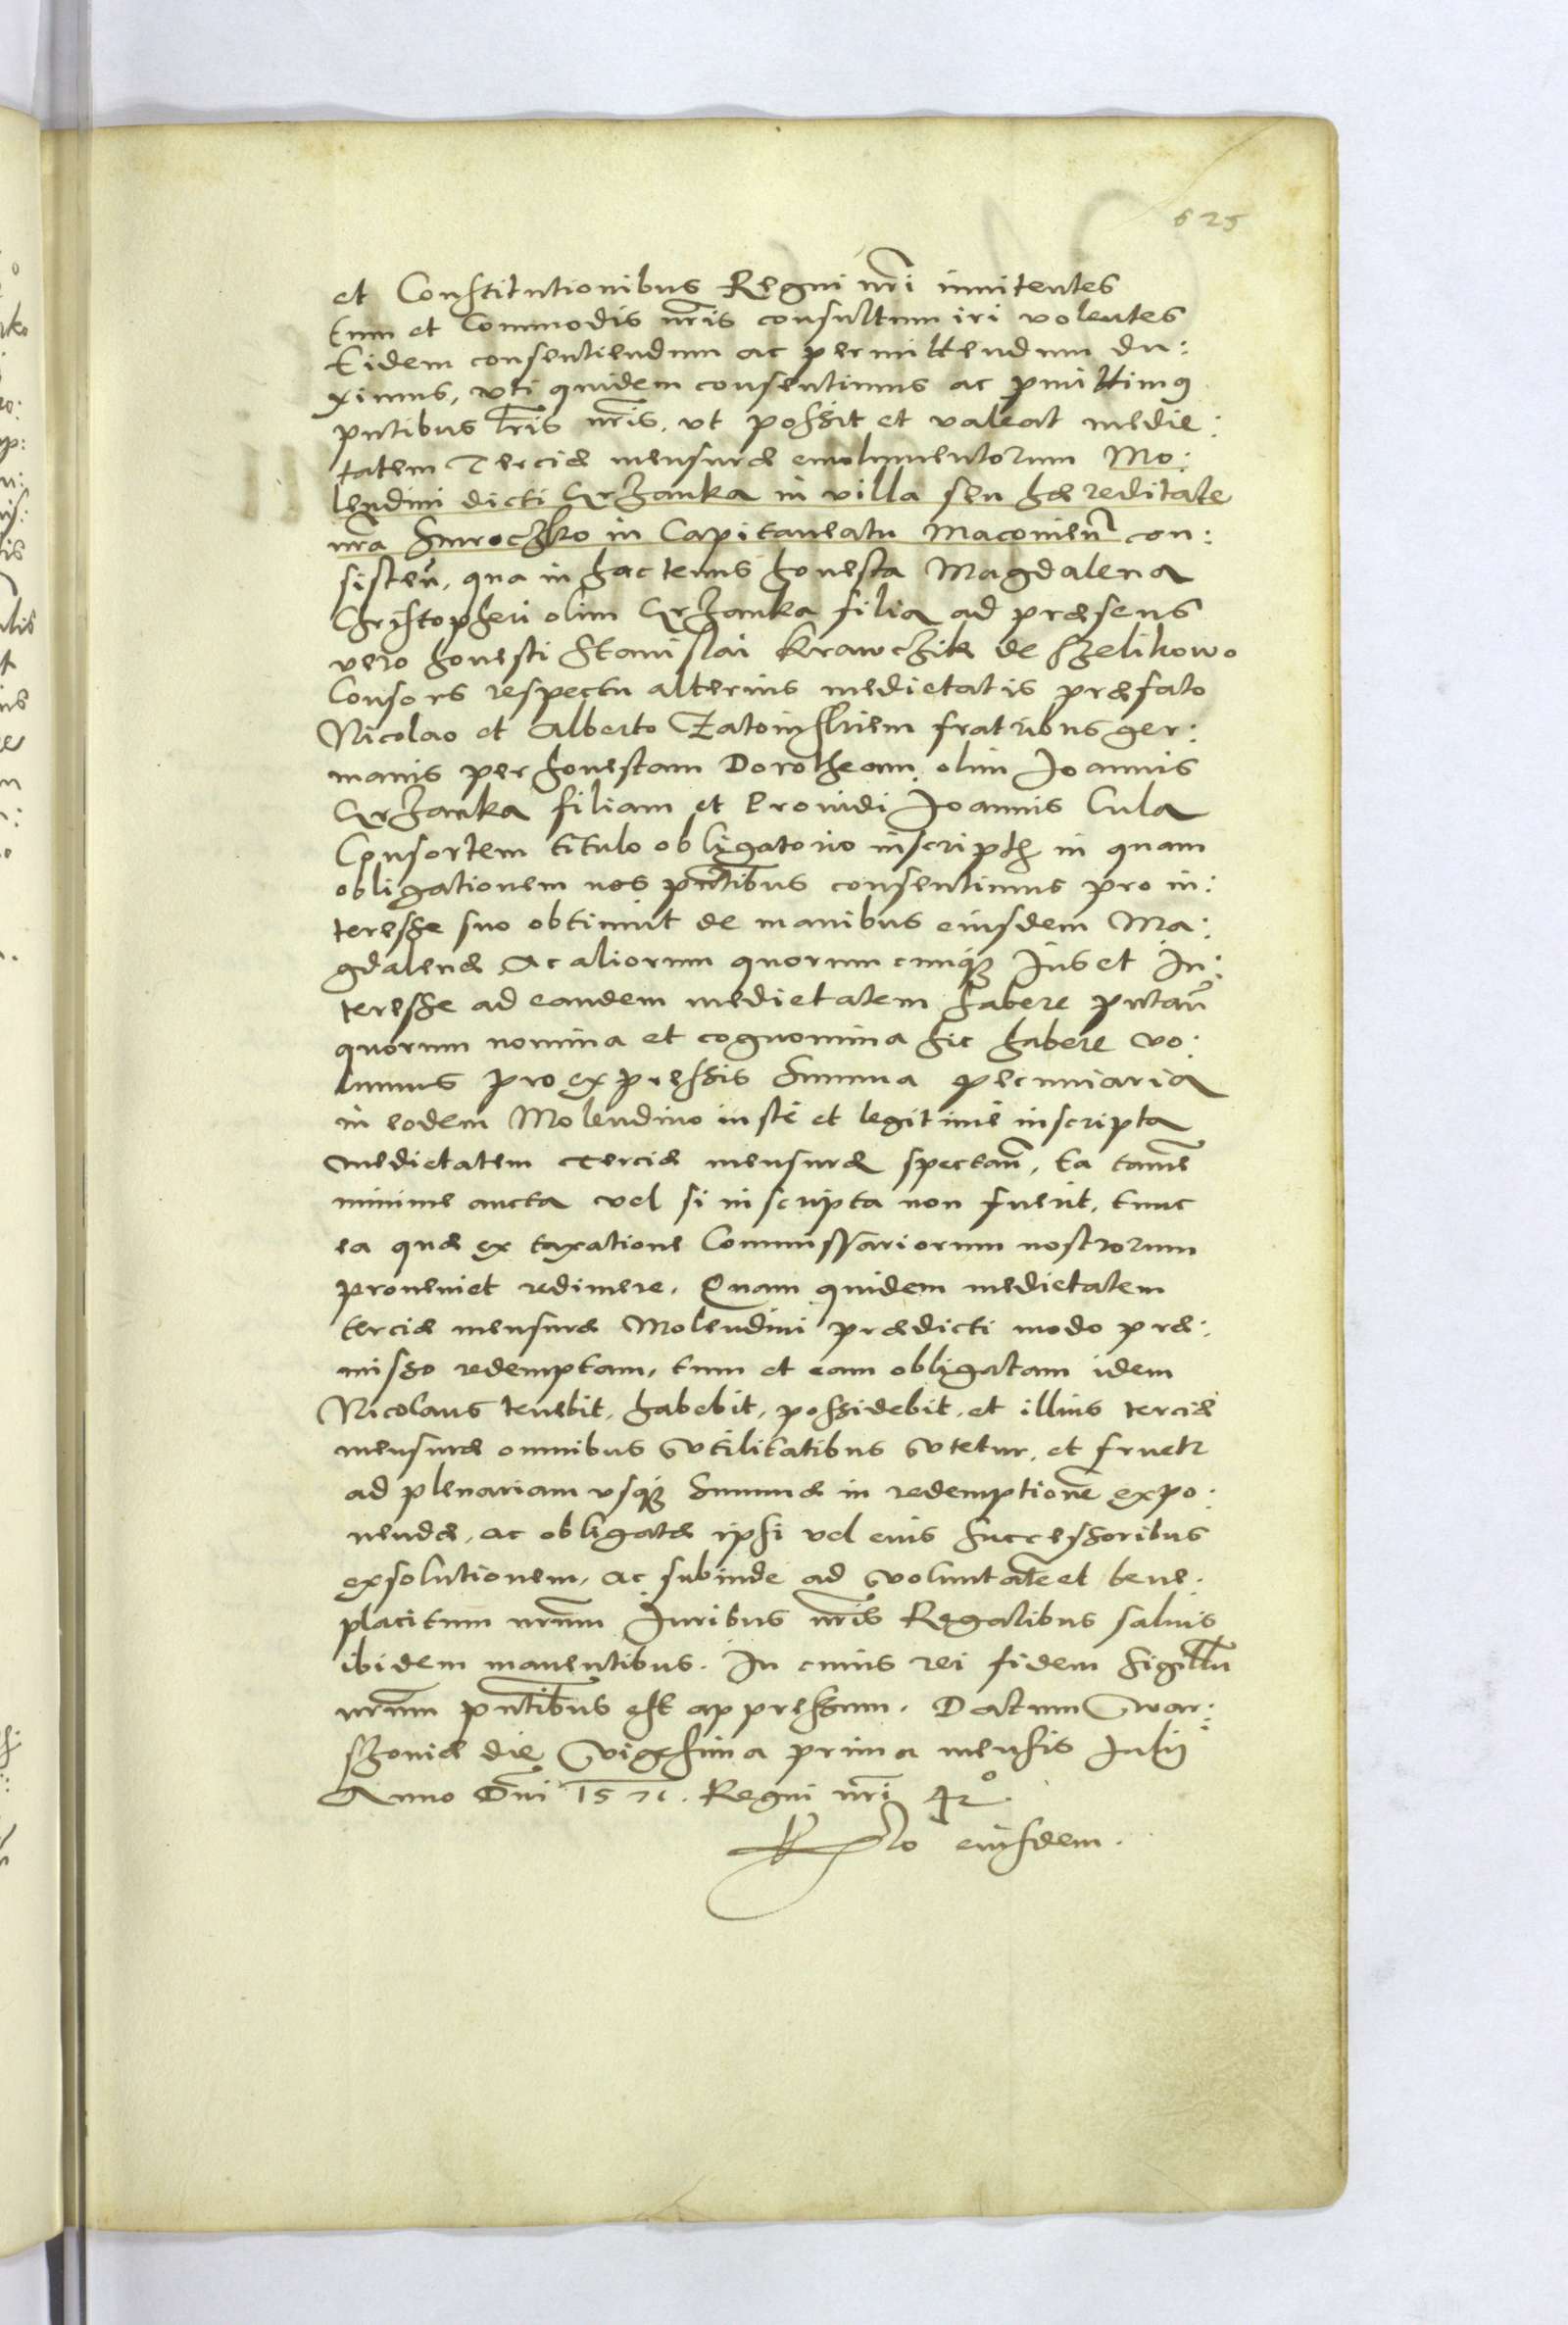 625
et Constitutionibus Regni nr̃i innitentes
tum et Commodis nr̃is consultum iri volentes
Eidem consentiendum ac permittendum du:
ximus, vti quidem consentimus ac pmittimꝯ
pntibus lr̃is nr̃is, vt possit et valeat medie:
tatem Terciæ mensuræ emolumentorum Mo:
lendini dicti Grzanka in villa seu hæreditate
nr̃a Smroczko in Capitaneatu Maconien̄ con:
sisten̄, qua in hactenus honesta Magdalena
Christopheri olim Grzanka filia ad præsens
vero honesti Stanislai Krawczik de Szelikowo
Consors respectu alterius medietatis præfato
Nicolao et Alberto fratribus ger:
manis per honestam Dorotheam olim Joannis
Grzanka filiam et Prouidi Joannis Cula
Consortem titulo obligatorio inscripth in quam
obligationem nos pñtibus consentimus pro in:
teresse suo obtinuit de manibus eiusdem Ma:
gdalenæ Ac aliorum quorumcunqȝ Ius et In:
teresse ad eandem medietatem habere pntan̄
quorum nomina et cognomina hic habere vo:
lumus pro expressis Summa pecuniaria
in eodem Molendino iustè et legitimè inscripta
medietatem Terciæ mensuræ spectan̄, Ea tamē
minime aucta vel si inscripta non fuerit, tunc
ea quæ ex taxatione Commissariorum nostrorum
proueniet redimere. Quam quidem medietatem
terciæ mensuræ Molendini prædicti modo præ:
misso redemptam, tum et eam obligatam idem
Nicolaus tenebit, habebit, possidebit, et illius terciæ
mensuræ omnibus vtilitatibus vtetur, et fruetr
ad plenariam vsqȝ Summæ in redemptionē expo:
nendæ, ac obligatæ ipsi vel eius Successoribus
exsolutionem, ac subinde ad voluntatē et bene.
placitum nr̃um Iuribus nr̃is Regalibus saluis
ibidem manentibus. In cuius rei fidem Sigillū
nr̃um pñtibus est appressum. Datum War:
szouiæ die Vigesima prima mensis Julij
Anno Dn̄i 1571. Regni nr̃i 42°.
Rlo eiusdem.